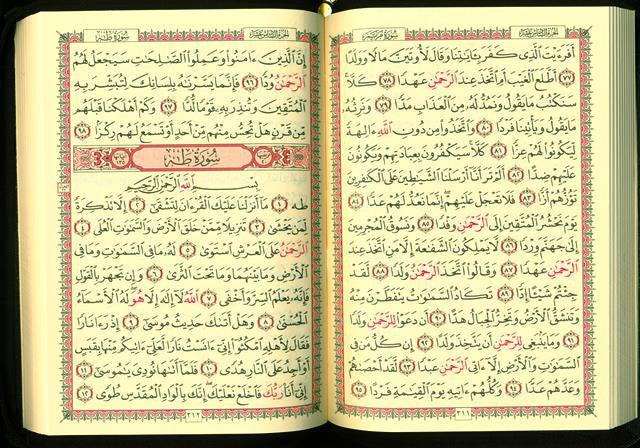 سُورَةُ مَرْيَمَ
الجُزْءُ السَّادِسُ عَشَرَ
أَفَرَءَيْتَ ٱلَّذِى كَفَرَ بِـَٔايَـٰتِنَا وَقَالَ لَأُوتَيَنَّ مَالًا وَوَلَدًا
٧٧ أَطَّلَعَ ٱلْغَيْبَ أَمِ ٱتَّخَذَ عِندَ ٱلرَّحْمَـٰنِ عَهْدًا ٧٨ كَلَّا
سَنَكْتُبُ مَا يَقُولُ وَنَمُدُّ لَهُۥ مِنَ ٱلْعَذَابِ مَدًّا ٧٩ وَنَرِثُهُۥ
مَا يَقُولُ وَيَأْتِينَا فَرْدًا ٨٠ وَٱتَّخَذُوا۟ مِن دُونِ ٱللَّهِ ءَالِهَةً
لِّيَكُونُوا۟ لَهُمْ عِزًّا ٨١ كَلَّا سَيَكْفُرُونَ بِعِبَادَتِهِمْ وَيَكُونُونَ
عَلَيْهِمْ ضِدًّا ٨٢ أَلَمْ تَرَ أَنَّآ أَرْسَلْنَا ٱلشَّيَـٰطِينَ عَلَى ٱلْكَـٰفِرِينَ
تَؤُزُّهُمْ أَزًّا ٨٣ فَلَا تَعْجَلْ عَلَيْهِمْ إِنَّمَا نَعُدُّ لَهُمْ عَدًّا ٨٤
يَوْمَ نَحْشُرُ ٱلْمُتَّقِينَ إِلَى ٱلرَّحْمَـٰنِ وَفْدًا ٨٥ وَنَسُوقُ ٱلْمُجْرِمِينَ
إِلَىٰ جَهَنَّمَ وِرْدًا ٨٦ لَّا يَمْلِكُونَ ٱلشَّفَـٰعَةَ إِلَّا مَنِ ٱتَّخَذَ عِندَ
ٱلرَّحْمَـٰنِ عَهْدًا ٨٧ وَقَالُوا۟ ٱتَّخَذَ ٱلرَّحْمَـٰنُ وَلَدًا ٨٨ لَّقَدْ
جِئْتُمْ شَيْـًٔا إِدًّا ٨٩ تَكَادُ ٱلسَّمَـٰوَٰتُ يَتَفَطَّرْنَ مِنْهُ
وَتَنشَقُّ ٱلْأَرْضُ وَتَخِرُّ ٱلْجِبَالُ هَدًّا ٩٠ أَن دَعَوْا۟ لِلرَّحْمَـٰنِ وَلَدًا
٩١ وَمَا يَنۢبَغِى لِلرَّحْمَـٰنِ أَن يَتَّخِذَ وَلَدًا ٩٢ إِن كُلُّ مَن فِى
ٱلسَّمَـٰوَٰتِ وَٱلْأَرْضِ إِلَّآ ءَاتِى ٱلرَّحْمَـٰنِ عَبْدًا ٩٣ لَّقَدْ أَحْصَىٰهُمْ
وَعَدَّهُمْ عَدًّا ٩٤ وَكُلُّهُمْ ءَاتِيهِ يَوْمَ ٱلْقِيَـٰمَةِ فَرْدًا ٩٥
٣١١
الجُزْءُ السَّادِسُ عَشَرَ
سُورَةُ طه
إِنَّ ٱلَّذِينَ ءَامَنُوا۟ وَعَمِلُوا۟ ٱلصَّـٰلِحَـٰتِ سَيَجْعَلُ لَهُمُ
ٱلرَّحْمَـٰنُ وُدًّا ٩٦ فَإِنَّمَا يَسَّرْنَـٰهُ بِلِسَانِكَ لِتُبَشِّرَ بِهِ
ٱلْمُتَّقِينَ وَتُنذِرَ بِهِۦ قَوْمًا لُّدًّا ٩٧ وَكَمْ أَهْلَكْنَا قَبْلَهُم
مِّن قَرْنٍ هَلْ تُحِسُّ مِنْهُم مِّنْ أَحَدٍ أَوْ تَسْمَعُ لَهُمْ رِكْزًۢا ٩٨
سُورَةُ طه
بِسْمِ ٱللَّهِ ٱلرَّحْمَـٰنِ ٱلرَّحِيمِ
طه ١ مَآ أَنزَلْنَا عَلَيْكَ ٱلْقُرْءَانَ لِتَشْقَىٰٓ ٢ إِلَّا تَذْكِرَةً
لِّمَن يَخْشَىٰ ٣ تَنزِيلًا مِّمَّنْ خَلَقَ ٱلْأَرْضَ وَٱلسَّمَـٰوَٰتِ ٱلْعُلَى ٤
ٱلرَّحْمَـٰنُ عَلَى ٱلْعَرْشِ ٱسْتَوَىٰ ٥ لَهُۥ مَا فِى ٱلسَّمَـٰوَٰتِ وَمَا فِى
ٱلْأَرْضِ وَمَا بَيْنَهُمَا وَمَا تَحْتَ ٱلثَّرَىٰ ٦ وَإِن تَجْهَرْ بِٱلْقَوْلِ
فَإِنَّهُۥ يَعْلَمُ ٱلسِّرَّ وَأَخْفَى ٧ ٱللَّهُ لَآ إِلَـٰهَ إِلَّا هُوَ لَهُ ٱلْأَسْمَآءُ
ٱلْحُسْنَىٰ ٨ وَهَلْ أَتَىٰكَ حَدِيثُ مُوسَىٰٓ ٩ إِذْ رَءَا نَارًا
فَقَالَ لِأَهْلِهِ ٱمْكُثُوٓا۟ إِنِّىٓ ءَانَسْتُ نَارًا لَّعَلِّىٓ ءَاتِيكُم مِّنْهَا بِقَبَسٍ
أَوْ أَجِدُ عَلَى ٱلنَّارِ هُدًى ١٠ فَلَمَّآ أَتَىٰهَا نُودِىَ يَـٰمُوسَىٰٓ ١١
إِنِّىٓ أَنَا۠ رَبُّكَ فَٱخْلَعْ نَعْلَيْكَ إِنَّكَ بِٱلْوَادِ ٱلْمُقَدَّسِ طُوًى ١٢
٣١٢